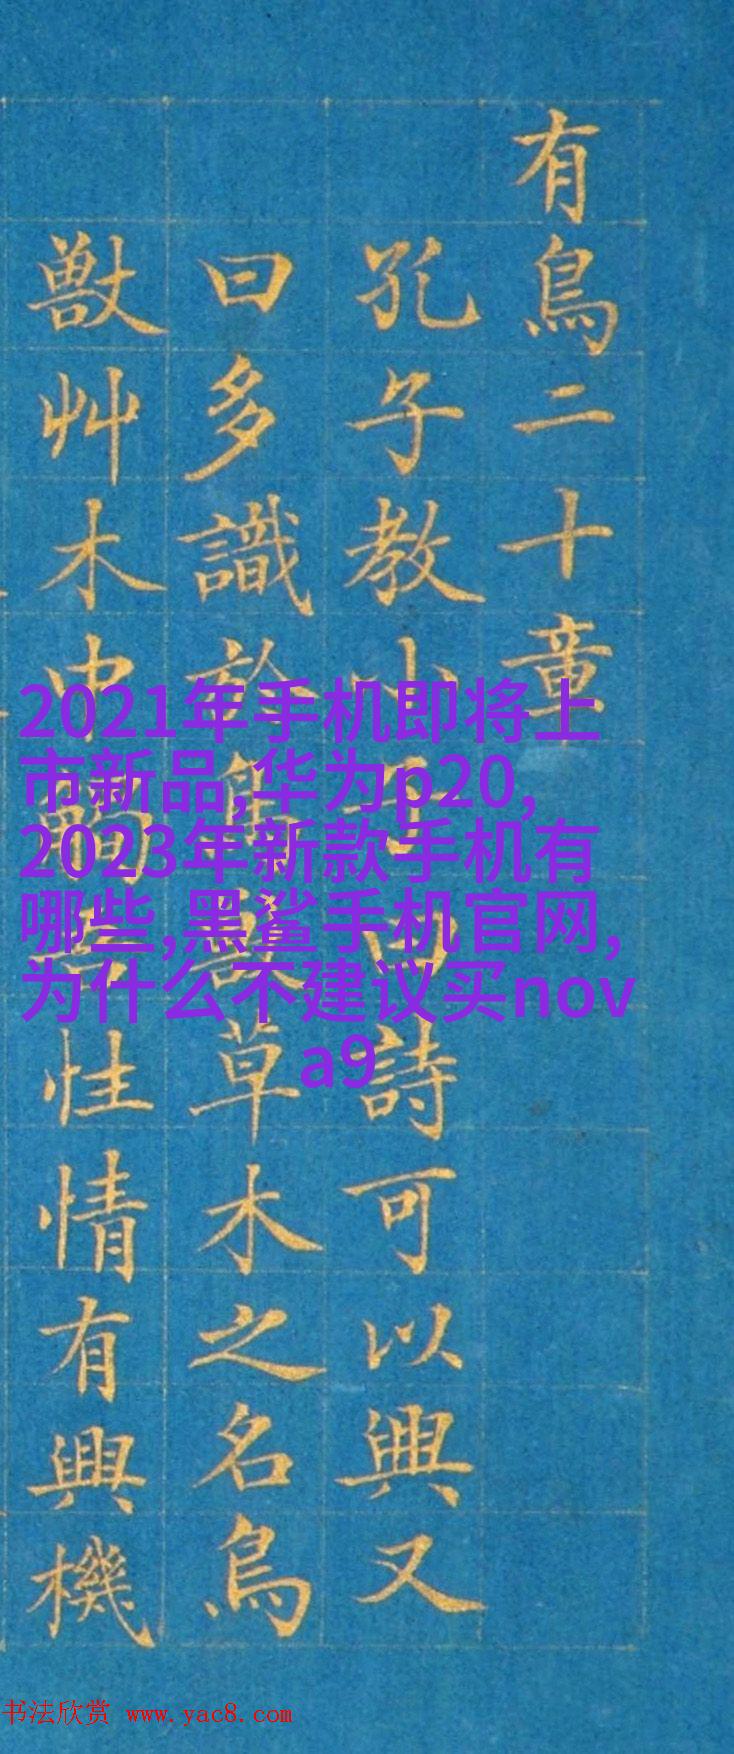 有鳥二十章
孔子教小子曰詩可以興又
曰多識於鳥獸草木之名鳥
獸艸木中性情有興機
2021年手机即将上
市新品,华为p20,
2023年新款手机有
哪些,黑鲨手机官网,
为什么不建议买nov
a9
书法欣赏 www.yac8.com